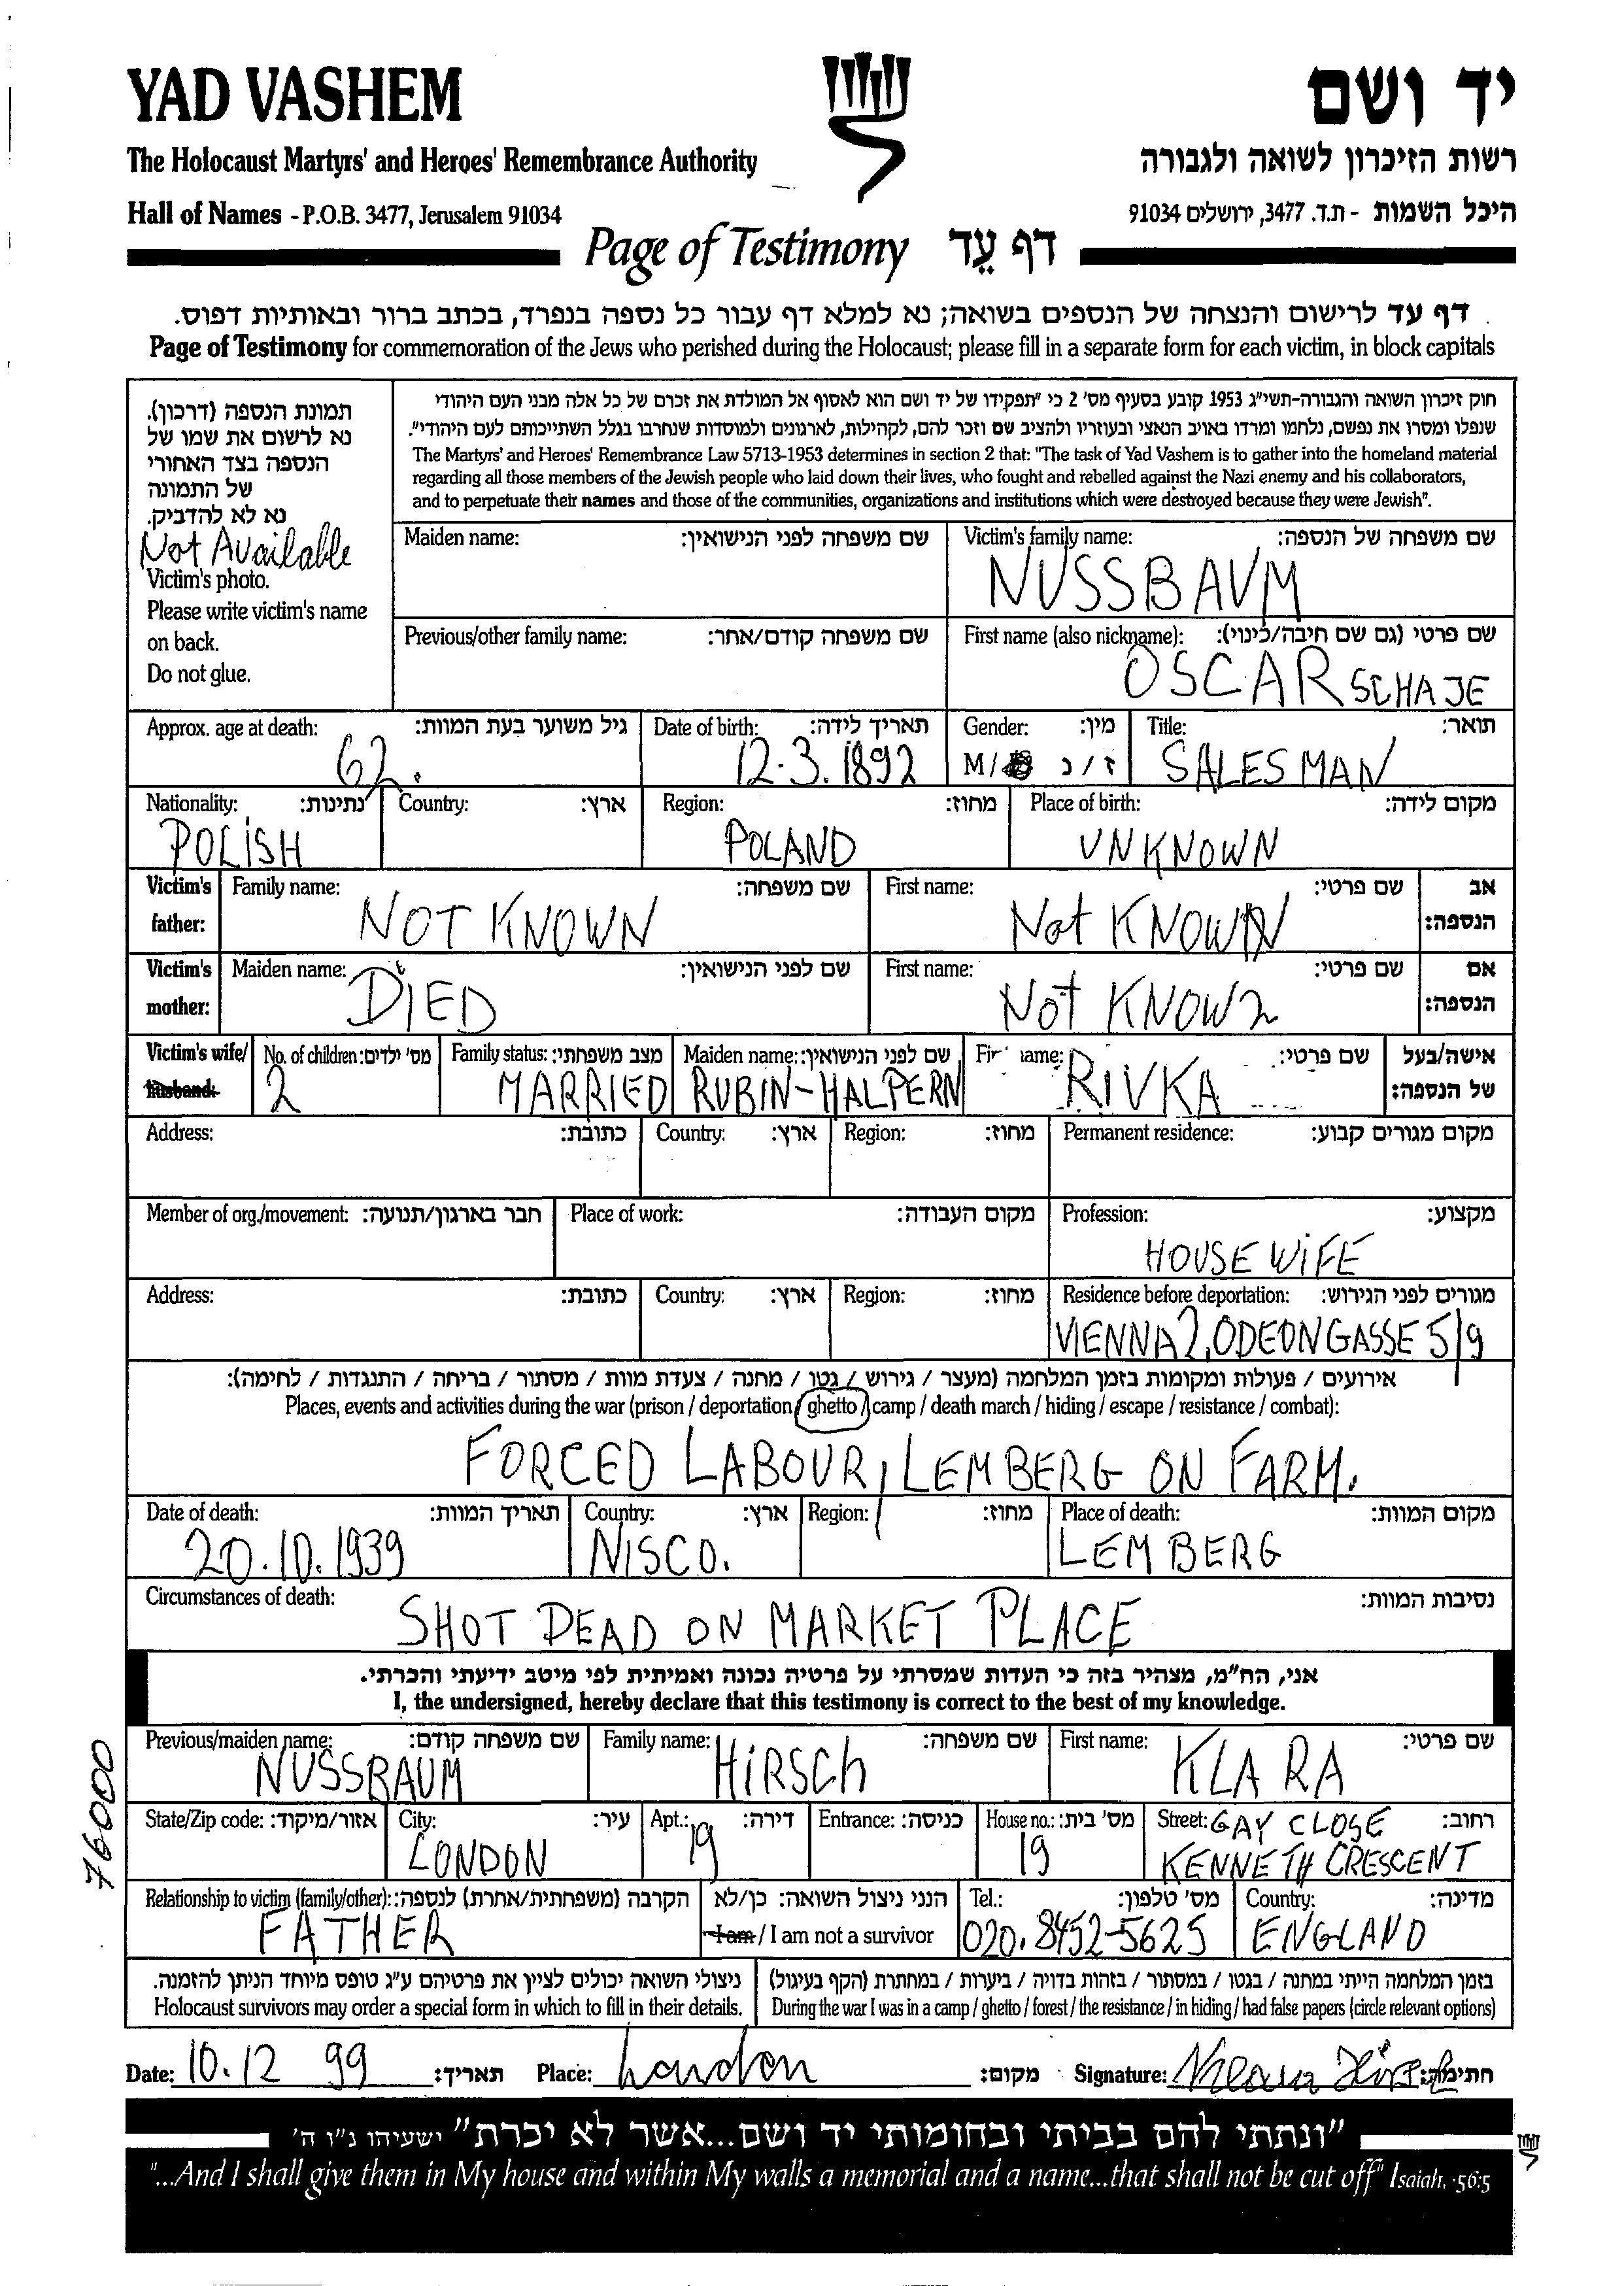 YAD VASHEM
יד ושם
The Holocaust Martyrs' and Heroes' Remembrance Authority
רשות הזיכרון לשואה ולגבורה
Hall of Names - P.O.B. 3477, Jerusalem 91034
היכל השמות - ת.ד. 3477, ירושלים 91034
Page of Testimony דף עֵד
דף עד לרישום והנצחה של הנספים בשואה; נא למלא דף עבור כל נספה בנפרד, בכתב ברור ובאותיות דפוס.
Page of Testimony for commemoration of the Jews who perished during the Holocaust; please fill in a separate form for each victim, in block capitals
תמונת הנספה (דרכון).
נא לרשום את שמו של
הנספה בצד האחורי
של התמונה
נא לא להדביק.
Not Available
Victim's photo.
Please write victim's name
on back.
Do not glue.
חוק זיכרון השואה והגבורה-תשי"ג 1953 קובע בסעיף מס' 2 כי "תפקידו של יד ושם הוא לאסוף אל המולדת את זכרם של כל אלה מבני העם היהודי
שנפלו ומסרו את נפשם, נלחמו ומרדו באויב הנאצי ובעוזריו ולהציב שם וזכר להם, לקהילות, לארגונים ולמוסדות שנחרבו בגלל השתייכותם לעם היהודי".
The Martyrs' and Heroes' Remembrance Law 5713-1953 determines in section 2 that: "The task of Yad Vashem is to gather into the homeland material
regarding all those members of the Jewish people who laid down their lives, who fought and rebelled against the Nazi enemy and his collaborators,
and to perpetuate their names and those of the communities, organizations and institutions which were destroyed because they were Jewish".
Maiden name: שם משפחה לפני הנישואין:
Victim's family name: שם משפחה של הנספה:
NUSSBAUM
Previous/other family name: שם משפחה קודם/אחר:
First name (also nickname): שם פרטי (גם שם חיבה/כינוי):
OSCAR SCHAJE
Approx. age at death: גיל משוער בעת המוות:
62.
Date of birth: תאריך לידה:
12.3.1892
Gender: מין:
M/ ז / נ
Title: תואר:
SALESMAN
Nationality: נתינות:
POLISH
Country: ארץ:
Region: מחוז:
POLAND
Place of birth: מקום לידה:
UNKNOWN
Victim's father:
Family name: שם משפחה:
NOT KNOWN
First name: שם פרטי:
Not KNOWN
אב הנספה:
Victim's mother:
Maiden name: שם לפני הנישואין:
DIED
First name: שם פרטי:
Not KNOWN
אם הנספה:
Victim's wife/ husband:
No. of children: מס' ילדים:
2
Family status: מצב משפחתי:
MARRIED
Maiden name: שם לפני הנישואין:
RUBIN-HALPERN
First name: שם פרטי:
RIVKA
אישה/בעל של הנספה:
Address: כתובת:
Country: ארץ:
Region: מחוז:
Permanent residence: מקום מגורים קבוע:
Member of org./movement: חבר בארגון/תנועה:
Place of work: מקום העבודה:
Profession: מקצוע:
HOUSE WIFE
Address: כתובת:
Country: ארץ:
Region: מחוז:
Residence before deportation: מגורים לפני הגירוש:
VIENNA 2, ODEONGASSE 5/9
אירועים / פעולות ומקומות בזמן המלחמה (מעצר / גירוש / גטו / מחנה / צעדת מוות / מסתור / בריחה / התנגדות / לחימה):
Places, events and activities during the war (prison / deportation / ghetto / camp / death march / hiding / escape / resistance / combat):
FORCED LABOUR, LEMBERG ON FARM.
Date of death: תאריך המוות:
20.10.1939
Country: ארץ:
NISCO.
Region: מחוז:
Place of death: מקום המוות:
LEMBERG
Circumstances of death: נסיבות המוות:
SHOT DEAD ON MARKET PLACE
אני, הח"מ, מצהיר בזה כי העדות שמסרתי על פרטיה נכונה ואמיתית לפי מיטב ידיעתי והכרתי.
I, the undersigned, hereby declare that this testimony is correct to the best of my knowledge.
Previous/maiden name: שם משפחה קודם:
NUSSBAUM
Family name: שם משפחה:
HIRSCh
First name: שם פרטי:
KLARA
State/Zip code: אזור/מיקוד:
City: עיר:
LONDON
Apt.: דירה:
19
Entrance: כניסה:
House no.: מס' בית:
19
Street: רחוב:
GAY CLOSE
KENNETH CRESCENT
Relationship to victim (family/other): הקרבה (משפחתית/אחרת) לנספה:
FATHER
הנני ניצול השואה: כן/לא
I am / I am not a survivor
Tel.: מס' טלפון:
020.8452-5625
Country: מדינה:
ENGLAND
ניצולי השואה יכולים לציין את פרטיהם ע"ג טופס מיוחד הניתן להזמנה.
Holocaust survivors may order a special form in which to fill in their details.
בזמן המלחמה הייתי במחנה / בגטו / במסתור / בזהות בדויה / ביערות / במחתרת (הקף בעיגול)
During the war I was in a camp / ghetto / forest / the resistance / in hiding / had false papers (circle relevant options)
76000
Date: 10.12 99 תאריך:
Place: London מקום:
Signature: Klara Hirsch חתימה:
"ונתתי להם בביתי ובחומותי יד ושם...אשר לא יכרת" ישעיהו נ"ו ה'
"...And I shall give them in My house and within My walls a memorial and a name...that shall not be cut off" Isaiah, 56:5